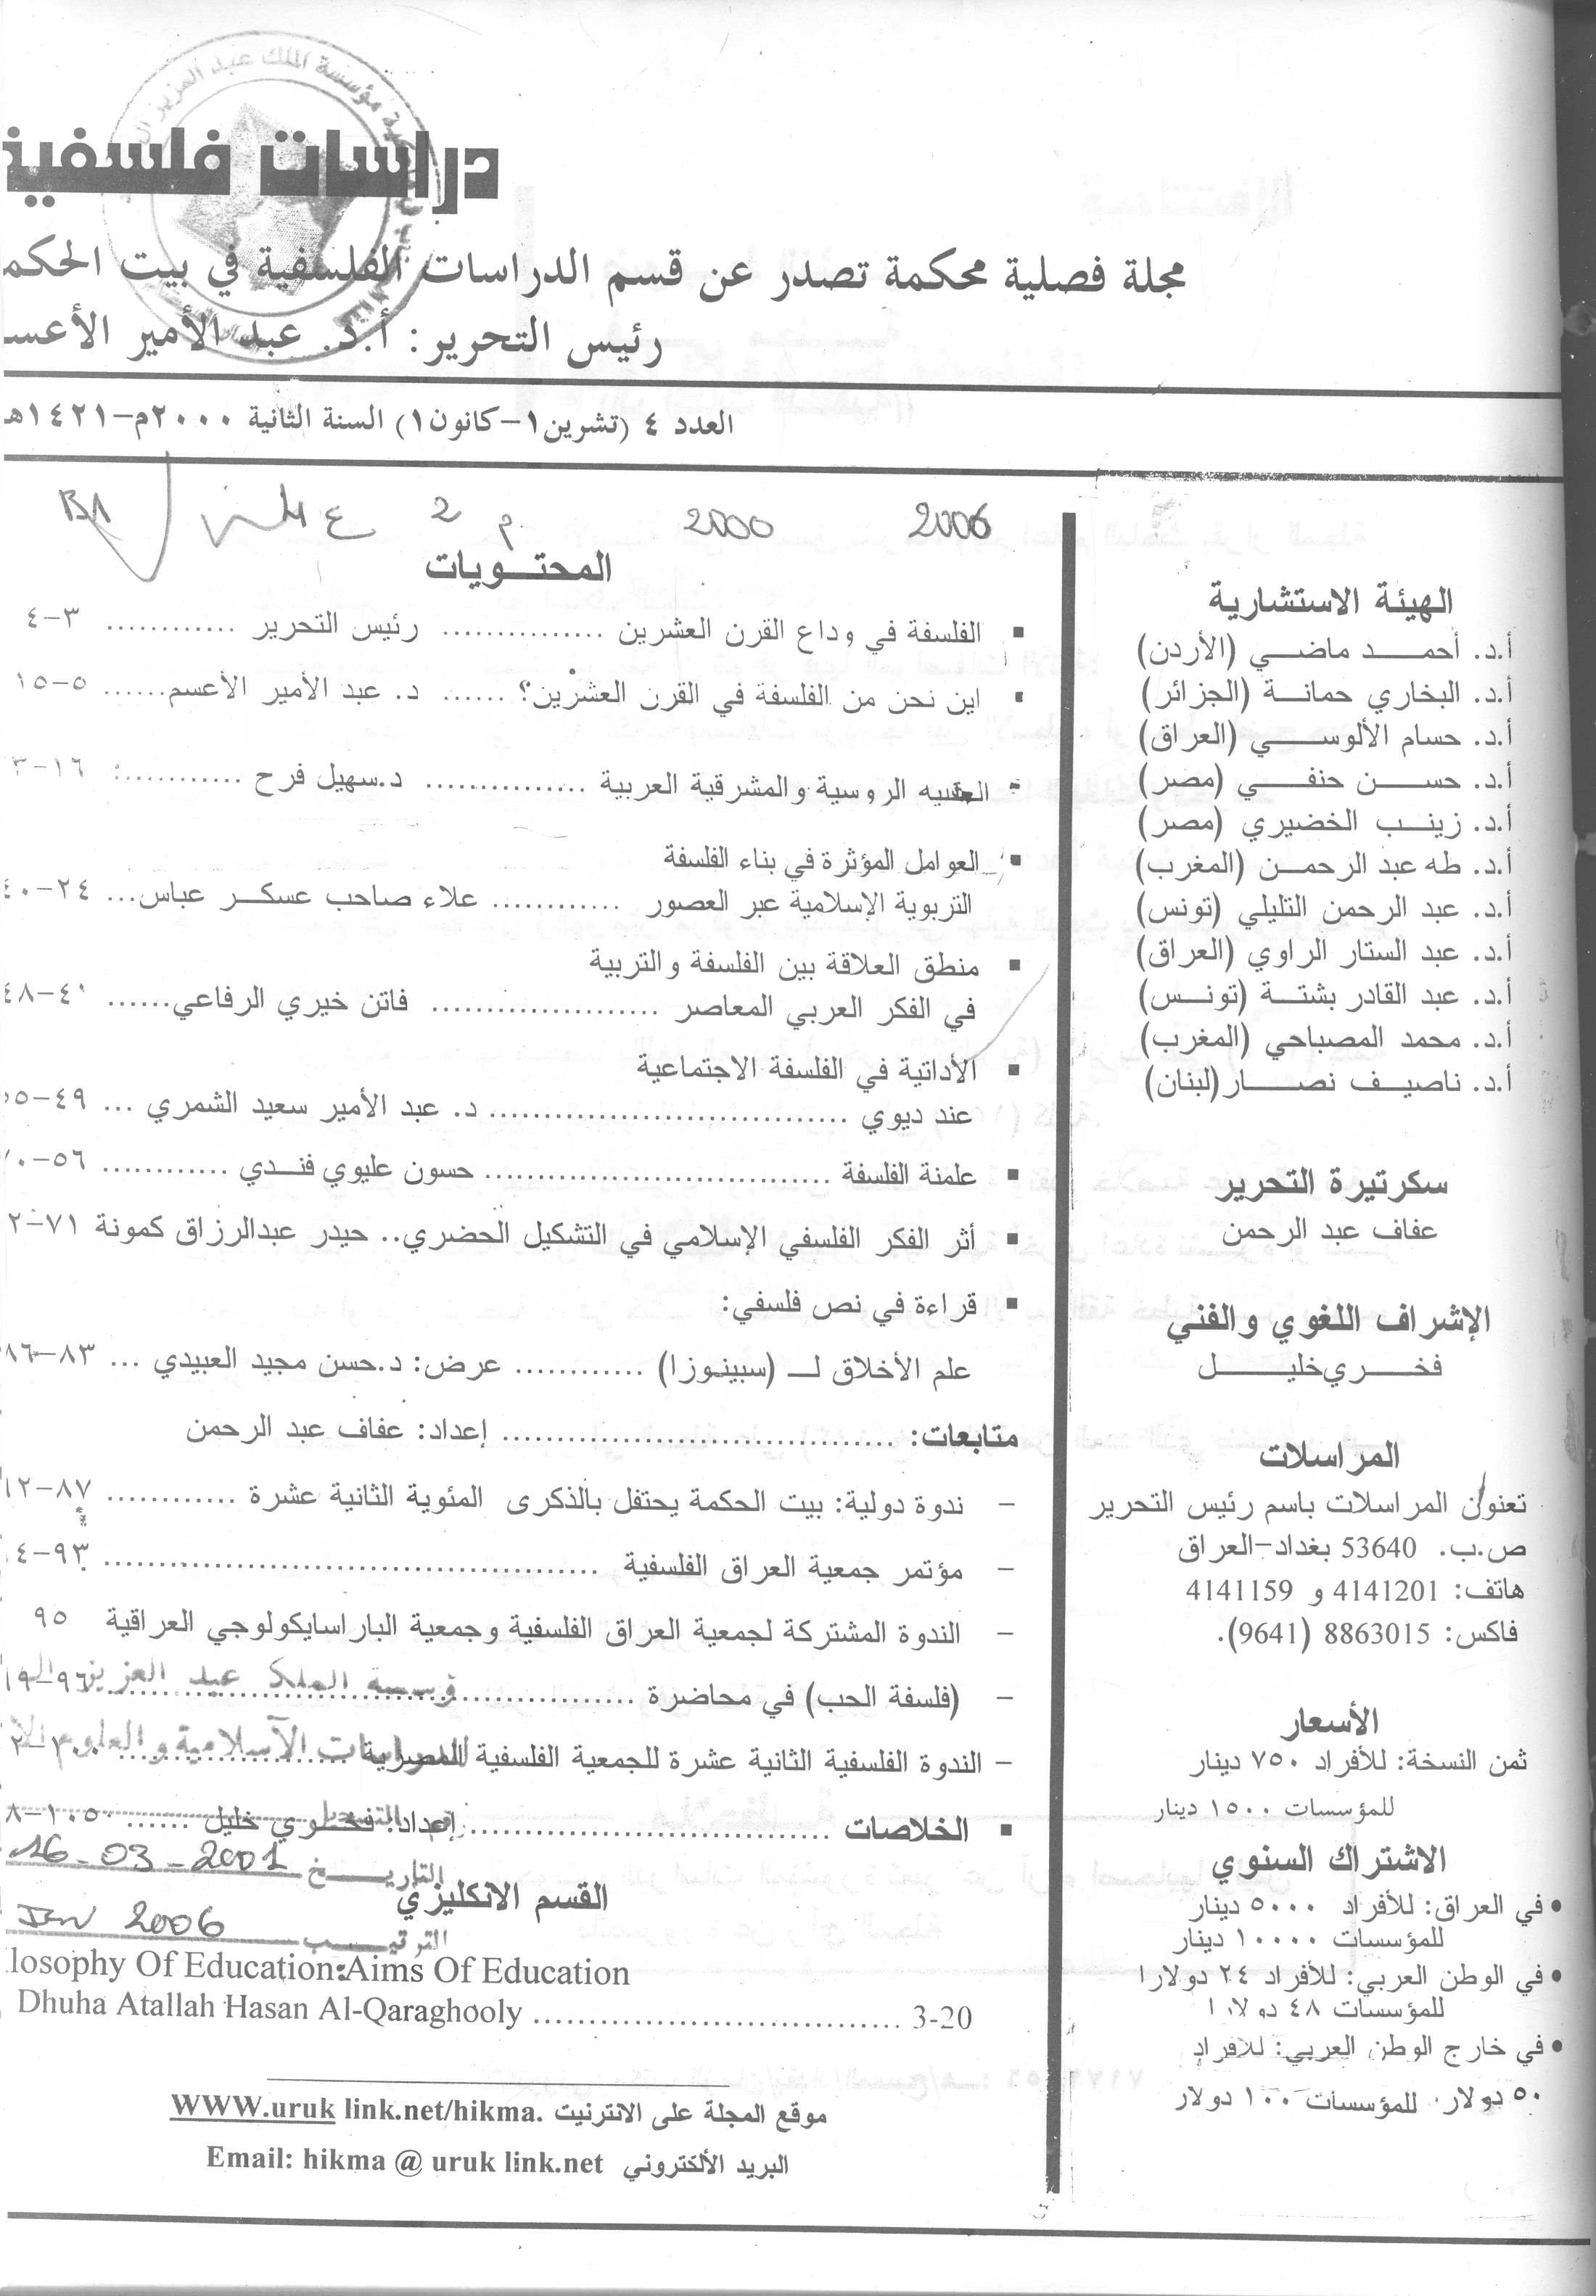 دراسات فلسفية
مجلة فصلية محكمة تصدر عن قسم الدراسات الفلسفية في بيت الحكم
رئيس التحرير: أ.د. عبد الأمير الأعس
العدد ٤ (تشرين١-كانون١) السنة الثانية ٢٠٠٠م-١٤٢١هـ
2006 2000 م 2 ع
الهيئة الاستشارية
أ.د. أحمد ماضي (الأردن)
أ.د. البخاري حمانة (الجزائر)
أ.د. حسام الألوسي (العراق)
أ.د. حسن حنفي (مصر)
أ.د. زينب الخضيري (مصر)
أ.د. طه عبد الرحمن (المغرب)
أ.د. عبد الرحمن التليلي (تونس)
أ.د. عبد الستار الراوي (العراق)
أ.د. عبد القادر بشتة (تونس)
أ.د. محمد المصباحي (المغرب)
أ.د. ناصيف نصار(لبنان)
سكرتيرة التحرير
عفاف عبد الرحمن
الإشراف اللغوي والفني
فخري خليل
المراسلات
تعنون المراسلات باسم رئيس التحرير
ص.ب. 53640 بغداد-العراق
هاتف: 4141201 و 4141159
فاكس: 8863015 (9641).
الأسعار
ثمن النسخة: للأفراد ٧٥٠ دينار
للمؤسسات ١٥٠٠ دينار
الاشتراك السنوي
• في العراق: للأفراد ٥٠٠٠ دينار
للمؤسسات ١٠٠٠٠ دينار
• في الوطن العربي: للأفراد ٢٤ دولارا
للمؤسسات ٤٨ دولارا
• في خارج الوطن العربي: للافراد
٥٠ دولار. للمؤسسات ١٠٠ دولار
المحتويات
▪ الفلسفة في وداع القرن العشرين ............... رئيس التحرير ............ ٣-٤
▪ اين نحن من الفلسفة في القرن العشرين؟ ...... د. عبد الأمير الأعسم...... ٥-١٥
الروسية والمشرقية العربية ............... د.سهيل فرح ............ ١٦-٣
▪ العوامل المؤثرة في بناء الفلسفة
التربوية الإسلامية عبر العصور ............ علاء صاحب عسكر عباس... ٢٤-٤٠
▪ منطق العلاقة بين الفلسفة والتربية
في الفكر العربي المعاصر ..................... فاتن خيري الرفاعي...... ٤٠-٤٨
▪ الأداتية في الفلسفة الاجتماعية
عند ديوي .................................. د. عبد الأمير سعيد الشمري ... ٤٩-٥٥
▪ علمنة الفلسفة ................................. حسون عليوي فندي ............ ٥٦-٧٠
▪ أثر الفكر الفلسفي الإسلامي في التشكيل الحضري.. حيدر عبدالرزاق كمونة ٧١-٢
▪ قراءة في نص فلسفي:
علم الأخلاق لـ (سبينوزا) ............ عرض: د.حسن مجيد العبيدي ... ٨٣-٨٦
متابعات: ..................................... إعداد: عفاف عبد الرحمن
– ندوة دولية: بيت الحكمة يحتفل بالذكرى المئوية الثانية عشرة ............ ٨٧-٩٢
– مؤتمر جمعية العراق الفلسفية .............................................. ٩٣-٤
– الندوة المشتركة لجمعية العراق الفلسفية وجمعية الباراسايكولوجي العراقية ٩٥
– (فلسفة الحب) في محاضرة .............................................. ٩٦-٩
– الندوة الفلسفية الثانية عشرة للجمعية الفلسفية المصرية ....................
▪ الخلاصات .................................. إعداد: فخري خليل ...... ١٠٥-٨
التاريخ 16-03-2001
القسم الانكليزي
الترتيب 2006
losophy Of Education:Aims Of Education
Dhuha Atallah Hasan Al-Qaraghooly .................................. 3-20
موقع المجلة على الانترنيت WWW.uruk link.net/hikma.
البريد الألكتروني Email: hikma @ uruk link.net